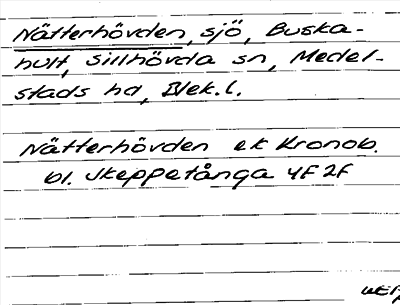 Nätterhövden, sjö, Buska-
hult, Sillhövda sn, Medel-
stads hd, Blek.l.
Nätterhövden ek Kronob.
bl. Skeppetånga 4F 2F